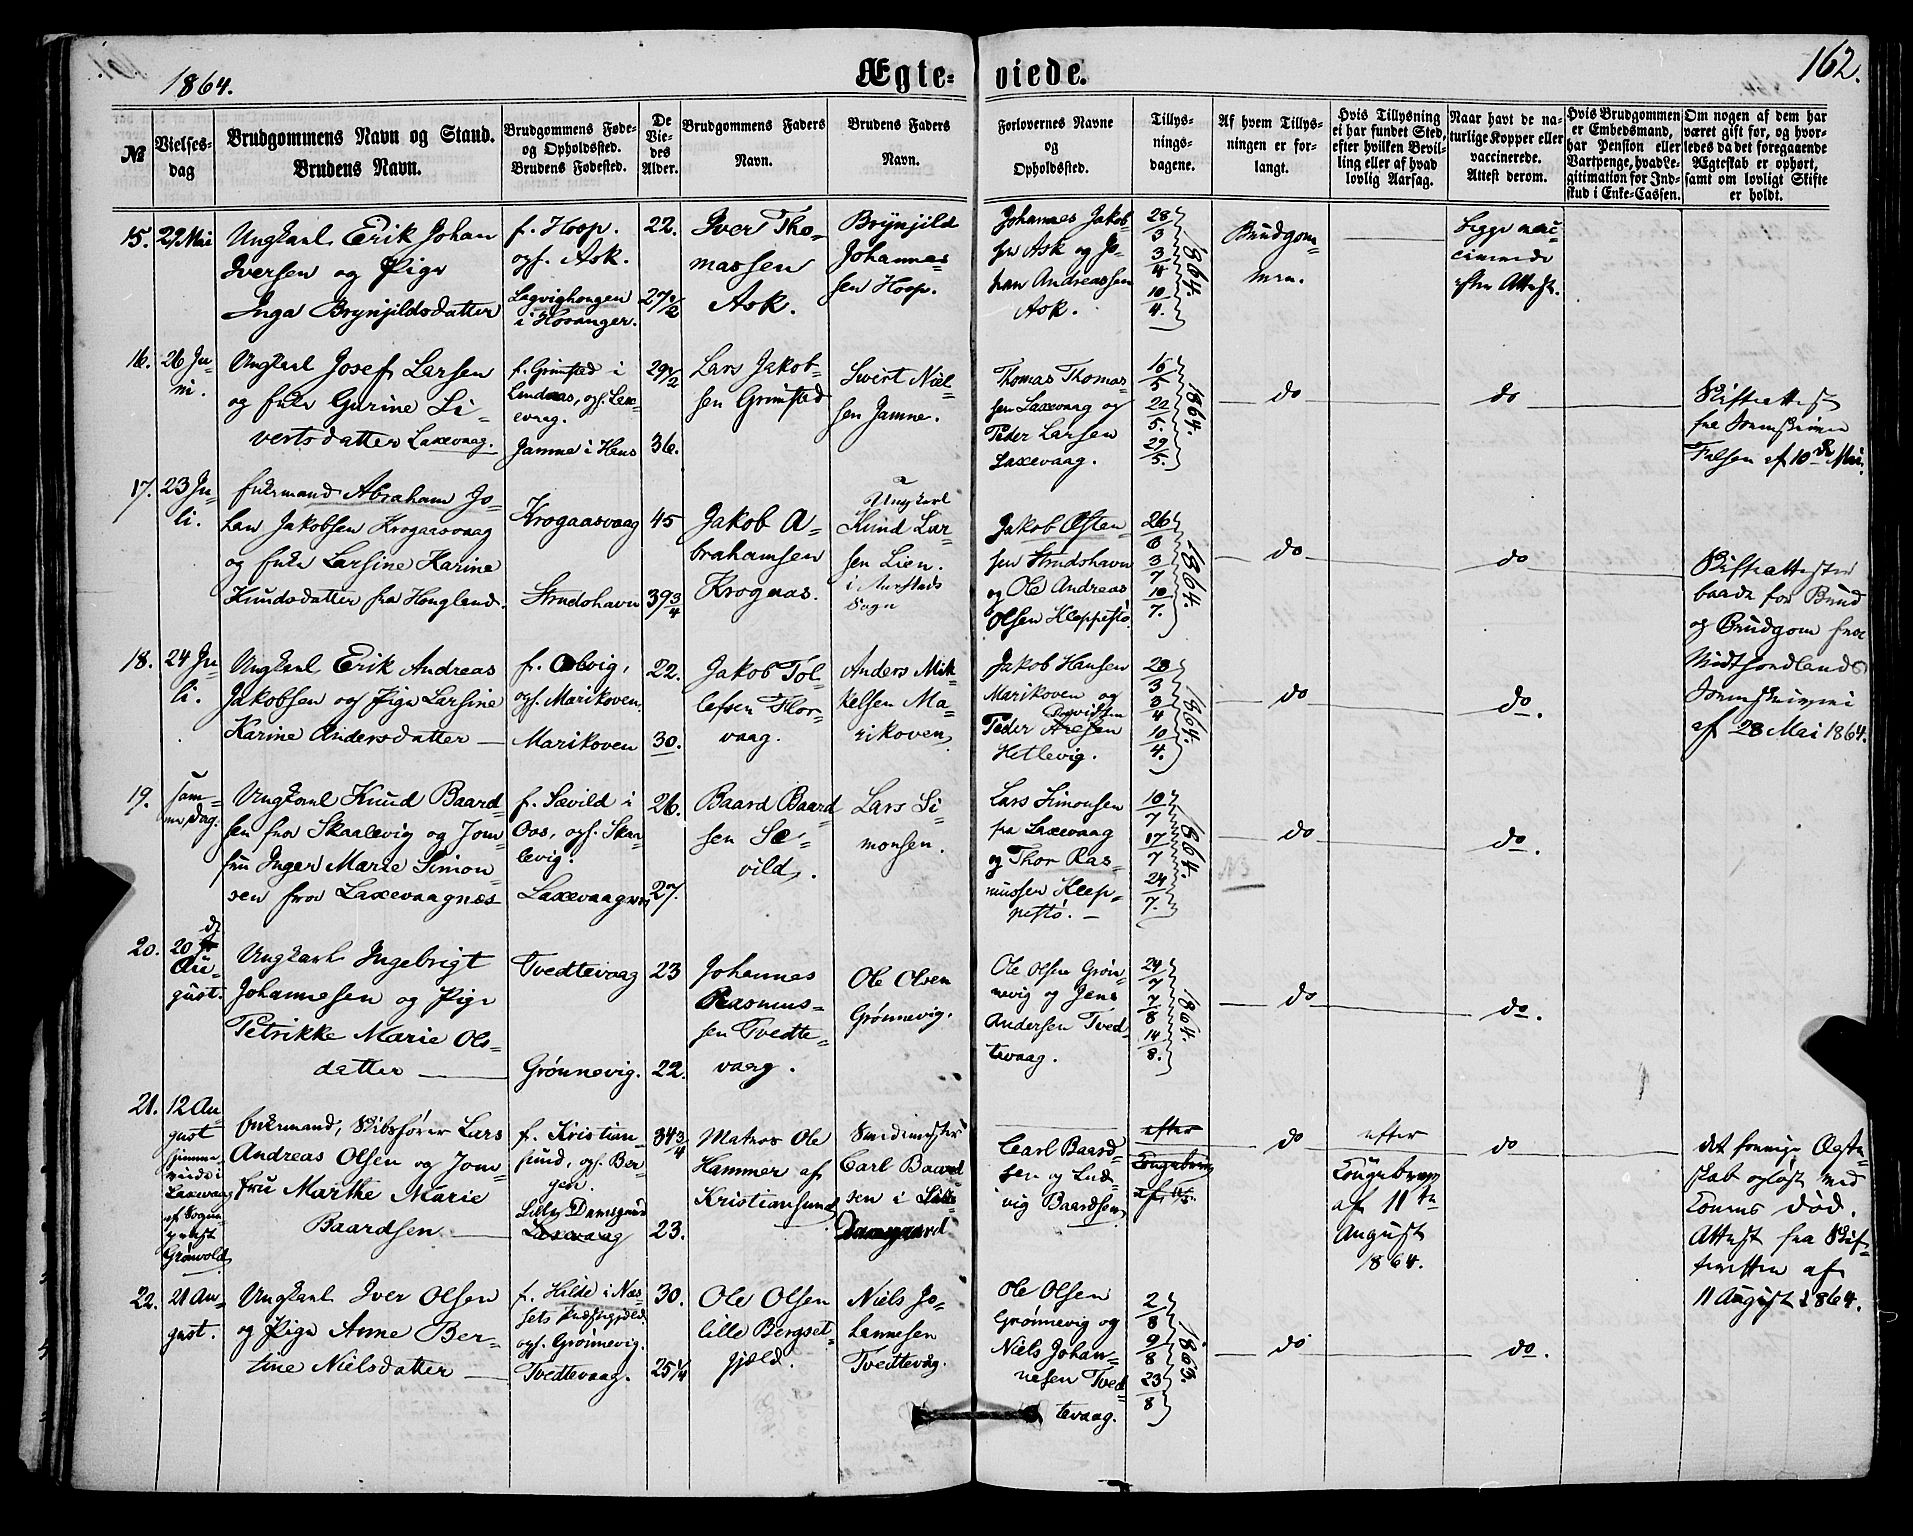 1864.
Ægte-
viede.
162.
№
Vielses-
dag
Brudgommens Navn og Stand.
Brudens Navn.
Brudgommens Føde-
og Opholdssted.
Brudens Fødested.
De
Vie-
des
Alder.
Brudgommens Faders
Navn.
Brudens Faders
Navn.
Forlovernes Navne
og
Opholdssted.
Tillys-
nings-
dagene.
Af hvem Tillys-
ningen er for-
langt.
Hvis Tillysning
ei har fundet Sted,
efter hvilken Bevil-
ling eller af hvad
lovlig Aarsag.
Naar havt de na-
turlige Kopper eller
vaccinerede.
Attest derom.
Hvis Brudgommen
er Embedsmand,
har Pension eller
Vartpenge, hvad Le-
gitimation for Ind-
skud i Enke-Cassen.
Om nogen af dem har
været gift før, og hvor-
ledes da det foregaaende
Ægteskab er ophørt,
samt om lovligt Skifte
er holdt.
15.
29 Mai
Ungkarl Erik Johan
Iversen og Pige
Inga Brynjildsdatter
f. Hoop.
oph. Ask.
i Hosanger.
22.
27 1/2
Iver Tho-
massen
Ask.
Brynjild
Johannes-
sen Hoop.
Johannes Jakob-
sen Ask og Jo-
han Andreassen
Ask.
28/3
3/4
10/4.
1864.
Brudgom-
men.
begge vac-
cinerede
efter Attest.
16.
26 Ju-
ni.
Ungkarl Josef Larsen
og Enke Gurine Si-
vertsdatter Laxevaag.
f. Grimsted i
Lindaas, oph. Lax-
evaag.
Jamne i Hens
29 1/2
36.
Lars Jakob-
sen Grimsted
Sivert Niel-
sen Jamne.
Thomas Thomas-
sen Laxevaag og
Peder Larsen
Laxevaag.
16/5
22/5.
29/5.
1864.
do
do
Skifteattest
fra Sorenskriver
Falsen af 10de Mai.
17.
23 Ju-
li.
Enkemand Abraham Jo-
han Jakobsen Krogaasvaag
og Enke Larsine Karine
Knudsdatter fra Hougland.
Krogaasvaag
Strudshavn
45
39 3/4
Jakob A-
brahamsen
Krogaas.
Ungkarl
Knud Lar-
sen Lien.
i
Sogn
Jakob Østen-
sen Strudshavn
og Ole Andreas
Olsen Kleppestø.
26/6
3/7
10/7.
1864.
do
do
Skifteattester
baade for Brud
og Brudgom fra
Midthordlands
Sorenskriveri
af 28 Mai 1864.
18.
24 Ju-
li.
Ungkarl Erik Andreas
Jakobsen og Pige Larsine
Karine Andersdatter
oph. Marikoven.
Marikoven
22.
30.
Jakob Tol-
lefsen Flor-
vaag.
Anders Mik-
kelsen Ma-
rikoven.
Jakob Hansen
Marikoven og
Davidsen
Peder Aresen
Hetlevig.
28/3
3/4
10/4.
1864.
do
do.
19.
samme
Dag.
Ungkarl Knud Baard-
sen fra Skaalevig og Jom-
fru Inger Marie Simon-
sen fra Laxevaagnæs
f. Sævild i
Oos, oph. Skaa-
levig.
Laxevaagnæs
26.
27.
Baard Baard-
sen Sæ-
vild.
Lars Si-
monsen.
Lars Simonsen
fra Laxevaag
og Thor Ras-
mussen Klep-
pestø.
10/7
17/7
24/7.
1864.
do
do.
20.
20de
Au-
gust.
Ungkarl Ingebrigt
Johannesen og Pige
Petrikke Marie Ols-
datter
Tvedtevaag
Grønnevig.
23
22.
Johannes
Rasmus-
sen Tvedte-
vaag.
Ole Olsen
Grønnevig.
Ole Olsen Grøn-
nevig og Jens
Andersen Tved-
tevaag.
24/7
7/8
14/8.
1864.
do
do.
21.
12 Au-
gust
hjemme-
viede i
Laxevaag
af Sogne-
præst
Grønvold
Enkemand, Skibsfører Lars
Andreas Olsen og Jom-
fru Marthe Marie
Baardsen
f. Kristian-
sund, oph. Ber-
gen.
Lille Damsgaard
Laxevaag
34 3/4
23.
Matros Ole
Hammer af
Kristiansund
Smedemester
Carl Baard-
sen i Lille
Damsgaard
Carl Baard-
sen og Lud-
vig Baardsen
efter
Kongebrev
do
efter
Kongebrev
af 11te
August
1864.
do
det forrige Ægte-
skab opløst ved
Konens Død.
Attest fra Skif-
teretten af
11 August 1864.
22.
21 Au-
gust.
Ungkarl Iver Olsen
og Pige Anne Ber-
tine Nielsdatter
f. Hilde i Næs-
sets Præstegjeld
oph. Grønnevig.
Tvedtevaag.
30.
25 1/4
Ole Olsen
lille Bergset-
gjæld.
Niels Jo-
hannesen
Tvedtevåg.
Ole Olsen
Grønnevig og
Niels Johan-
nesen Tved-
tevaag.
2/8
9/8
23/8
1863.
do
do.